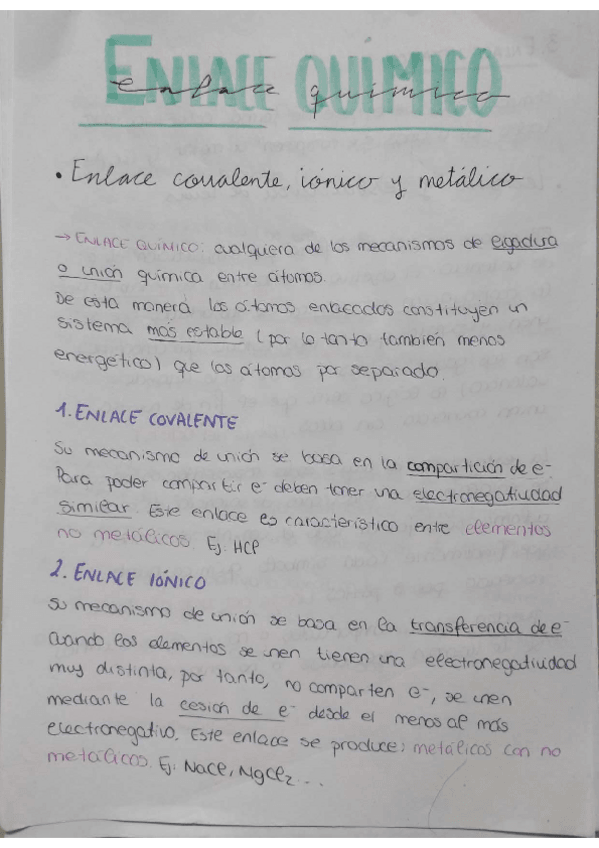 ENLACE QUÍMICO
enlace químico
• Enlace covalente, iónico y metálico
→ ENLACE QUÍMICO: cualquiera de los mecanismos de ligadura
o unión química entre átomos.
De esta manera los átomos enlacados constituyen un
sistema más estable (por lo tanto también menos
energético) que los átomos por separado.
1. ENLACE COVALENTE
Su mecanismo de unión se basa en la compartición de e-
Para poder compartir e- deben tener una electronegatividad
similar. Este enlace es característico entre elementos
no metálicos. Ej: HCl
2. ENLACE IÓNICO
Su mecanismo de unión se basa en la transferencia de e-
cuando los elementos se unen tienen una electronegatividad
muy distinta, por tanto, no comparten e-, se unen
mediante la cesión de e- desde el menos al más
electronegativo. Este enlace se produce: metálicos con no
metálicos. Ej: NaCl, MgCl2...